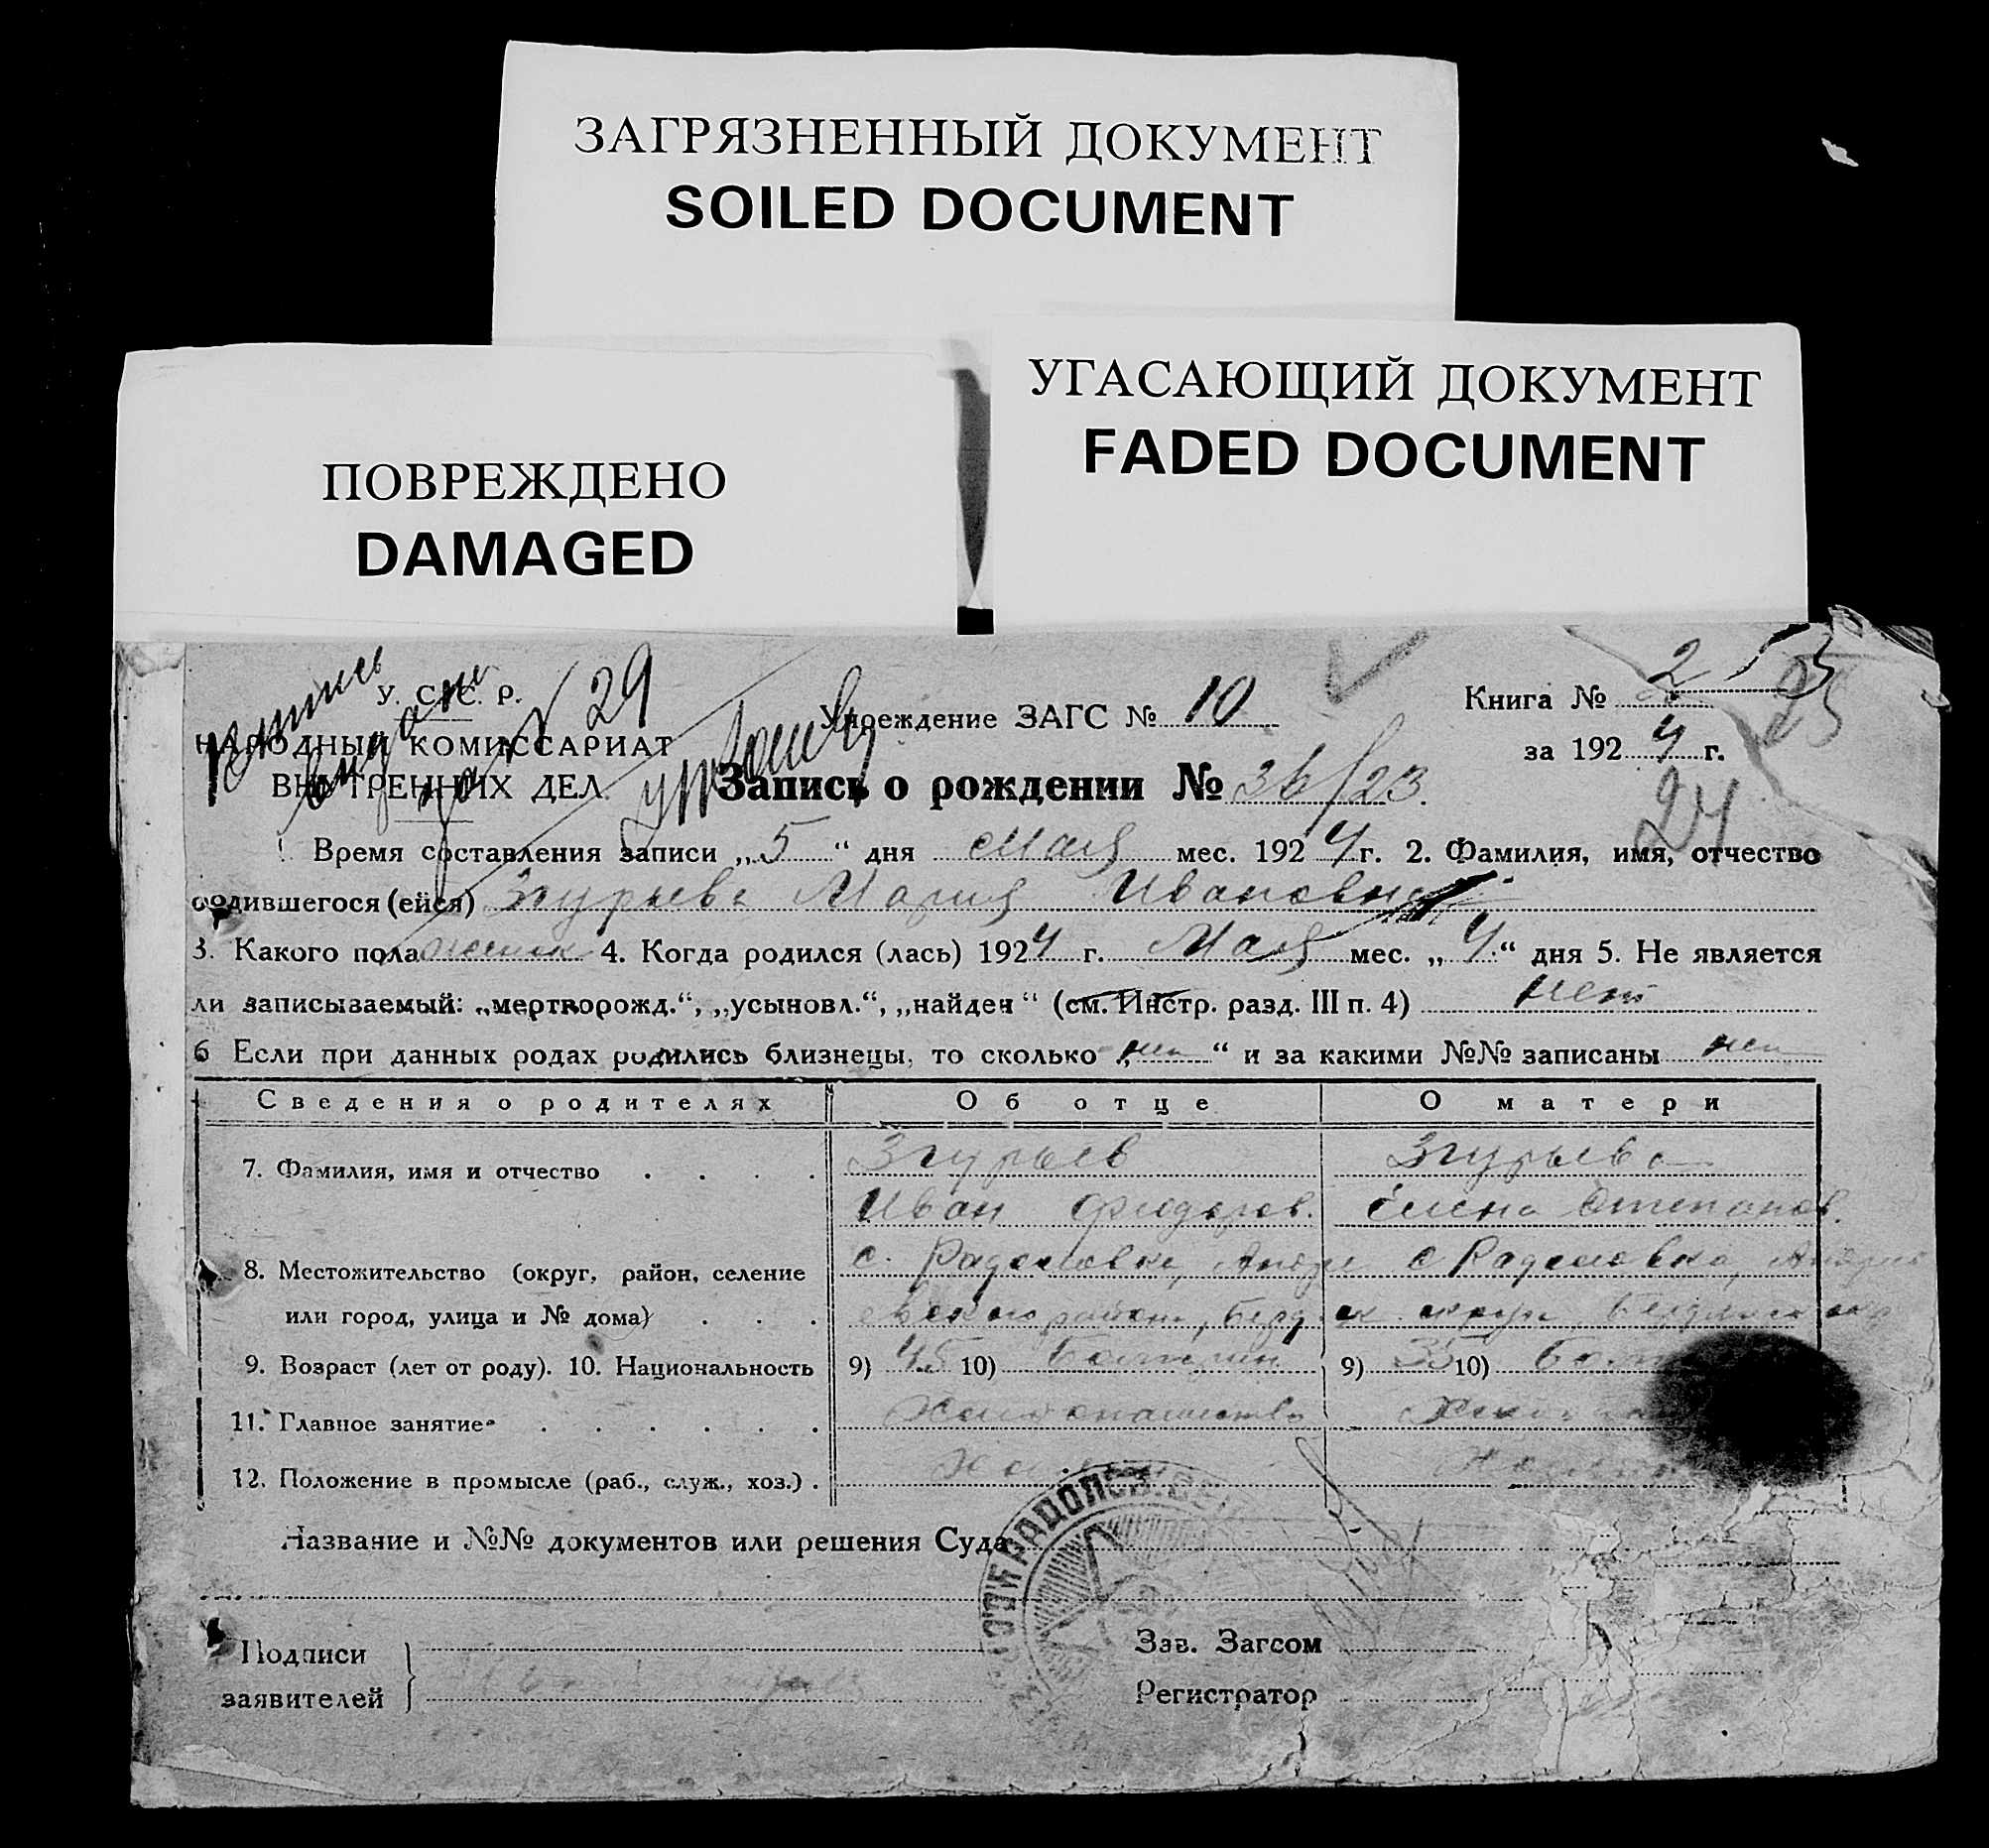 ЗАГРЯЗНЕННЫЙ ДОКУМЕНТ
SOILED DOCUMENT
УГАСАЮЩИЙ ДОКУМЕНТ
FADED DOCUMENT
ПОВРЕЖДЕНО
DAMAGED
29
У. С. С. Р.
НАРОДНЫЙ КОМИССАРИАТ
ВНУТРЕННИХ ДЕЛ.
Учреждение ЗАГС № 10
Книга № 2
25
за 1924 г.
24
Запись о рождении № 36/23.
Время составления записи „5“ дня Мая мес. 1924 г. 2. Фамилия, имя, отчество
родившегося (ейся) Згурьева Мария Ивановна
3. Какого пола женск 4. Когда родился (лась) 1924 г. Мая мес. „4.“ дня 5. Не является
ли записываемый: „мертворожд.“, „усыновл.“, „найден“ (см. Инстр. разд. III п. 4) нет
6 Если при данных родах родились близнецы, то сколько „нет“ и за какими №№ записаны нет
Сведения о родителях Об отце О матери
7. Фамилия, имя и отчество . . . . Згурьев Згурьева
Иван Федоров. Елена Степанов.
8. Местожительство (округ, район, селение с. Радоловка, Андре с Радоловка,
или город, улица и № дома) . . . евского района, Берд.
9. Возраст (лет от роду). 10. Национальность 9) 45 10) Болгарин 9) 35 10)
11. Главное занятие . . . . . . Хлебопашество
12. Положение в промысле (раб., служ., хоз.) . Хозяин
Название и №№ документов или решения Суда
Подписи
заявителей
Зав. Загсом
Регистратор